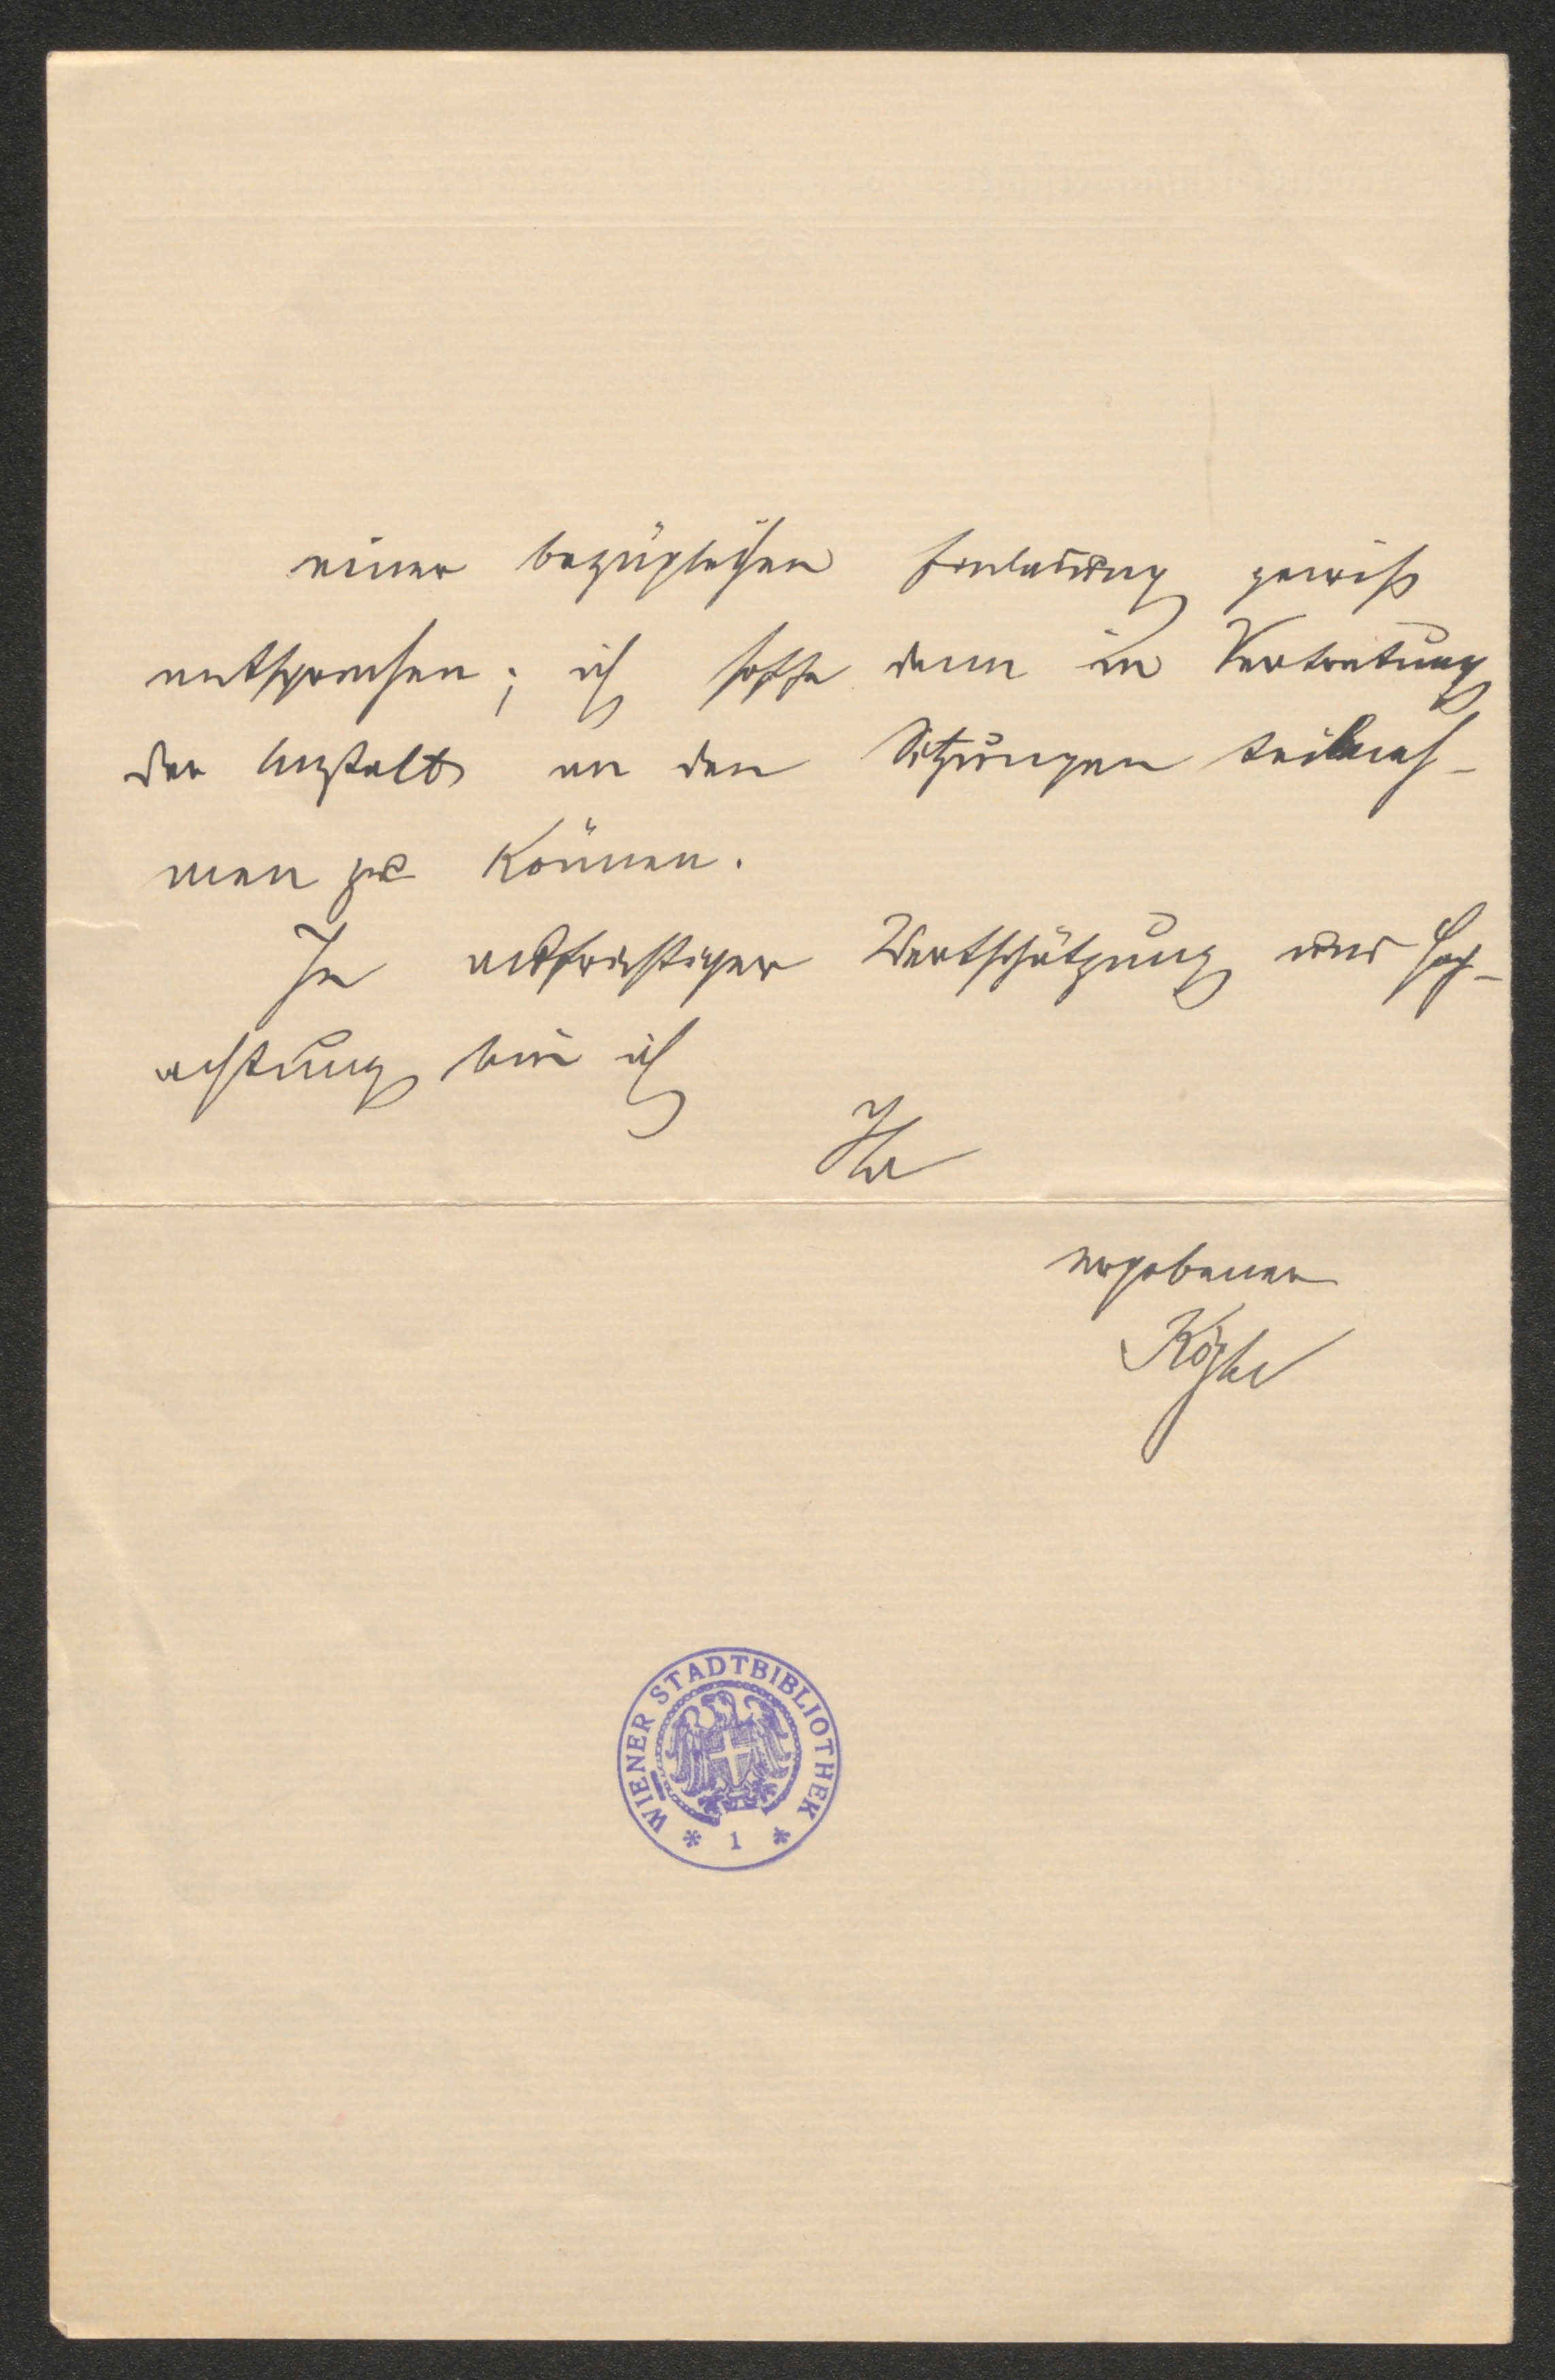 einer bezüglichen Einladung gewiß
entsprechen; ich hoffe dann in Vertretung
der Anstalt an den Sitzungen teilneh-
men zu können.
In aufrichtiger Wertschätzung und Hoch-
achtung bin ich
Ihr
ergebener
WIENER STADTBIBLIOTHEK
* 1 *